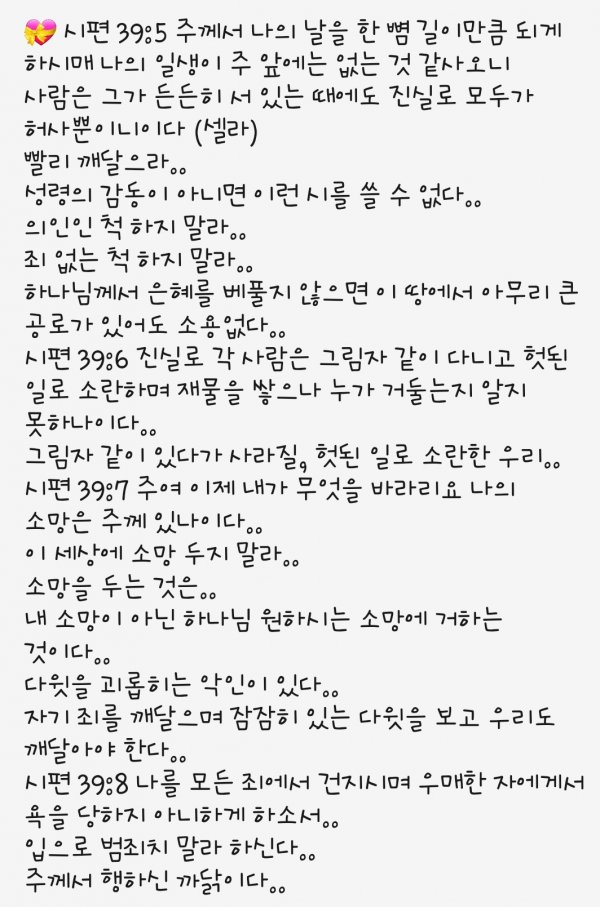 💝 시편 39:5 주께서 나의 날을 한 뼘 길이만큼 되게
하시매 나의 일생이 주 앞에는 없는 것 같사오니
사람은 그가 든든히 서 있는 때에도 진실로 모두가
허사뿐이니이다 (셀라)
빨리 깨달으라。。
성령의 감동이 아니면 이런 시를 쓸 수 없다。。
의인인 척 하지 말라。。
죄 없는 척 하지 말라。。
하나님께서 은혜를 베풀지 않으면 이 땅에서 아무리 큰
공로가 있어도 소용없다。。
시편 39:6 진실로 각 사람은 그림자 같이 다니고 헛된
일로 소란하며 재물을 쌓으나 누가 거둘는지 알지
못하나이다。。
그림자 같이 있다가 사라질, 헛된 일로 소란한 우리。。
시편 39:7 주여 이제 내가 무엇을 바라리요 나의
소망은 주께 있나이다。。
이 세상에 소망 두지 말라。。
소망을 두는 것은。。
내 소망이 아닌 하나님 원하시는 소망에 거하는
것이다。。
다윗을 괴롭히는 악인이 있다。。
자기 죄를 깨달으며 잠잠히 있는 다윗을 보고 우리도
깨달아야 한다。。
시편 39:8 나를 모든 죄에서 건지시며 우매한 자에게서
욕을 당하지 아니하게 하소서。。
입으로 범죄치 말라 하신다。。
주께서 행하신 까닭이다。。